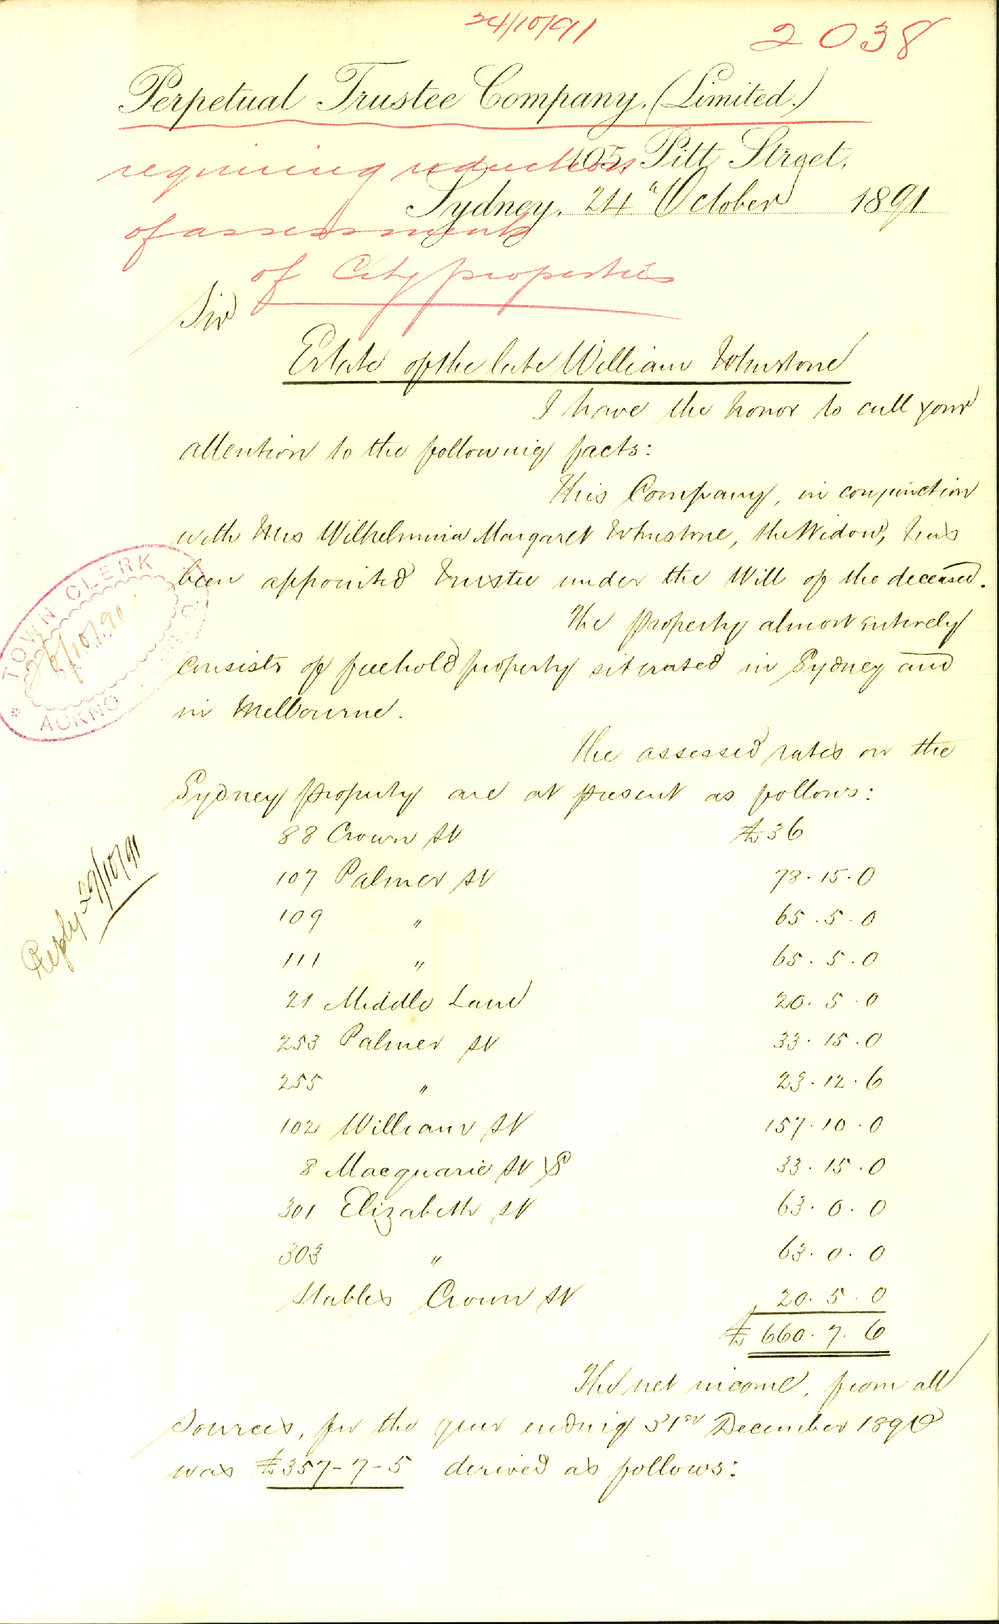 24/10/91
2038
Perpetual Trustee Company. (Limited.)
105, Pitt Street,
requiring reduction
Sydney, 24th October 1891
of assessments
of City properties
Sir
Estate of the late William Johnstone
I have the honor to call your
attention to the following facts:
This Company, in conjunction
with Mrs Wilhelmina Margaret Johnstone, the Widow, has
been appointed Trustee under the Will of the deceased.
The Property almost entirely
consists of freehold property situated in Sydney and
in Melbourne.
TOWN CLERK
The assessed rates on the
Sydney Property are at present as follows:
88 Crown St £36
107 Palmer St 78.15.0
109 " 65.5.0
111 " 65.5.0
21 Middle Lane 20.5.0
253 Palmer St 33.15.0
255 " 23.12.6
102 William St 157.10.0
8 Macquarie St S 33.15.0
301 Elizabeth St 63.0.0
303 " 63.0.0
Stables Crown St 20.5.0
£660.7.6
Reply 29/10/91
The net income, from all
sources, for the year ending 31st December 1890
was £357-7-5 derived as follows: